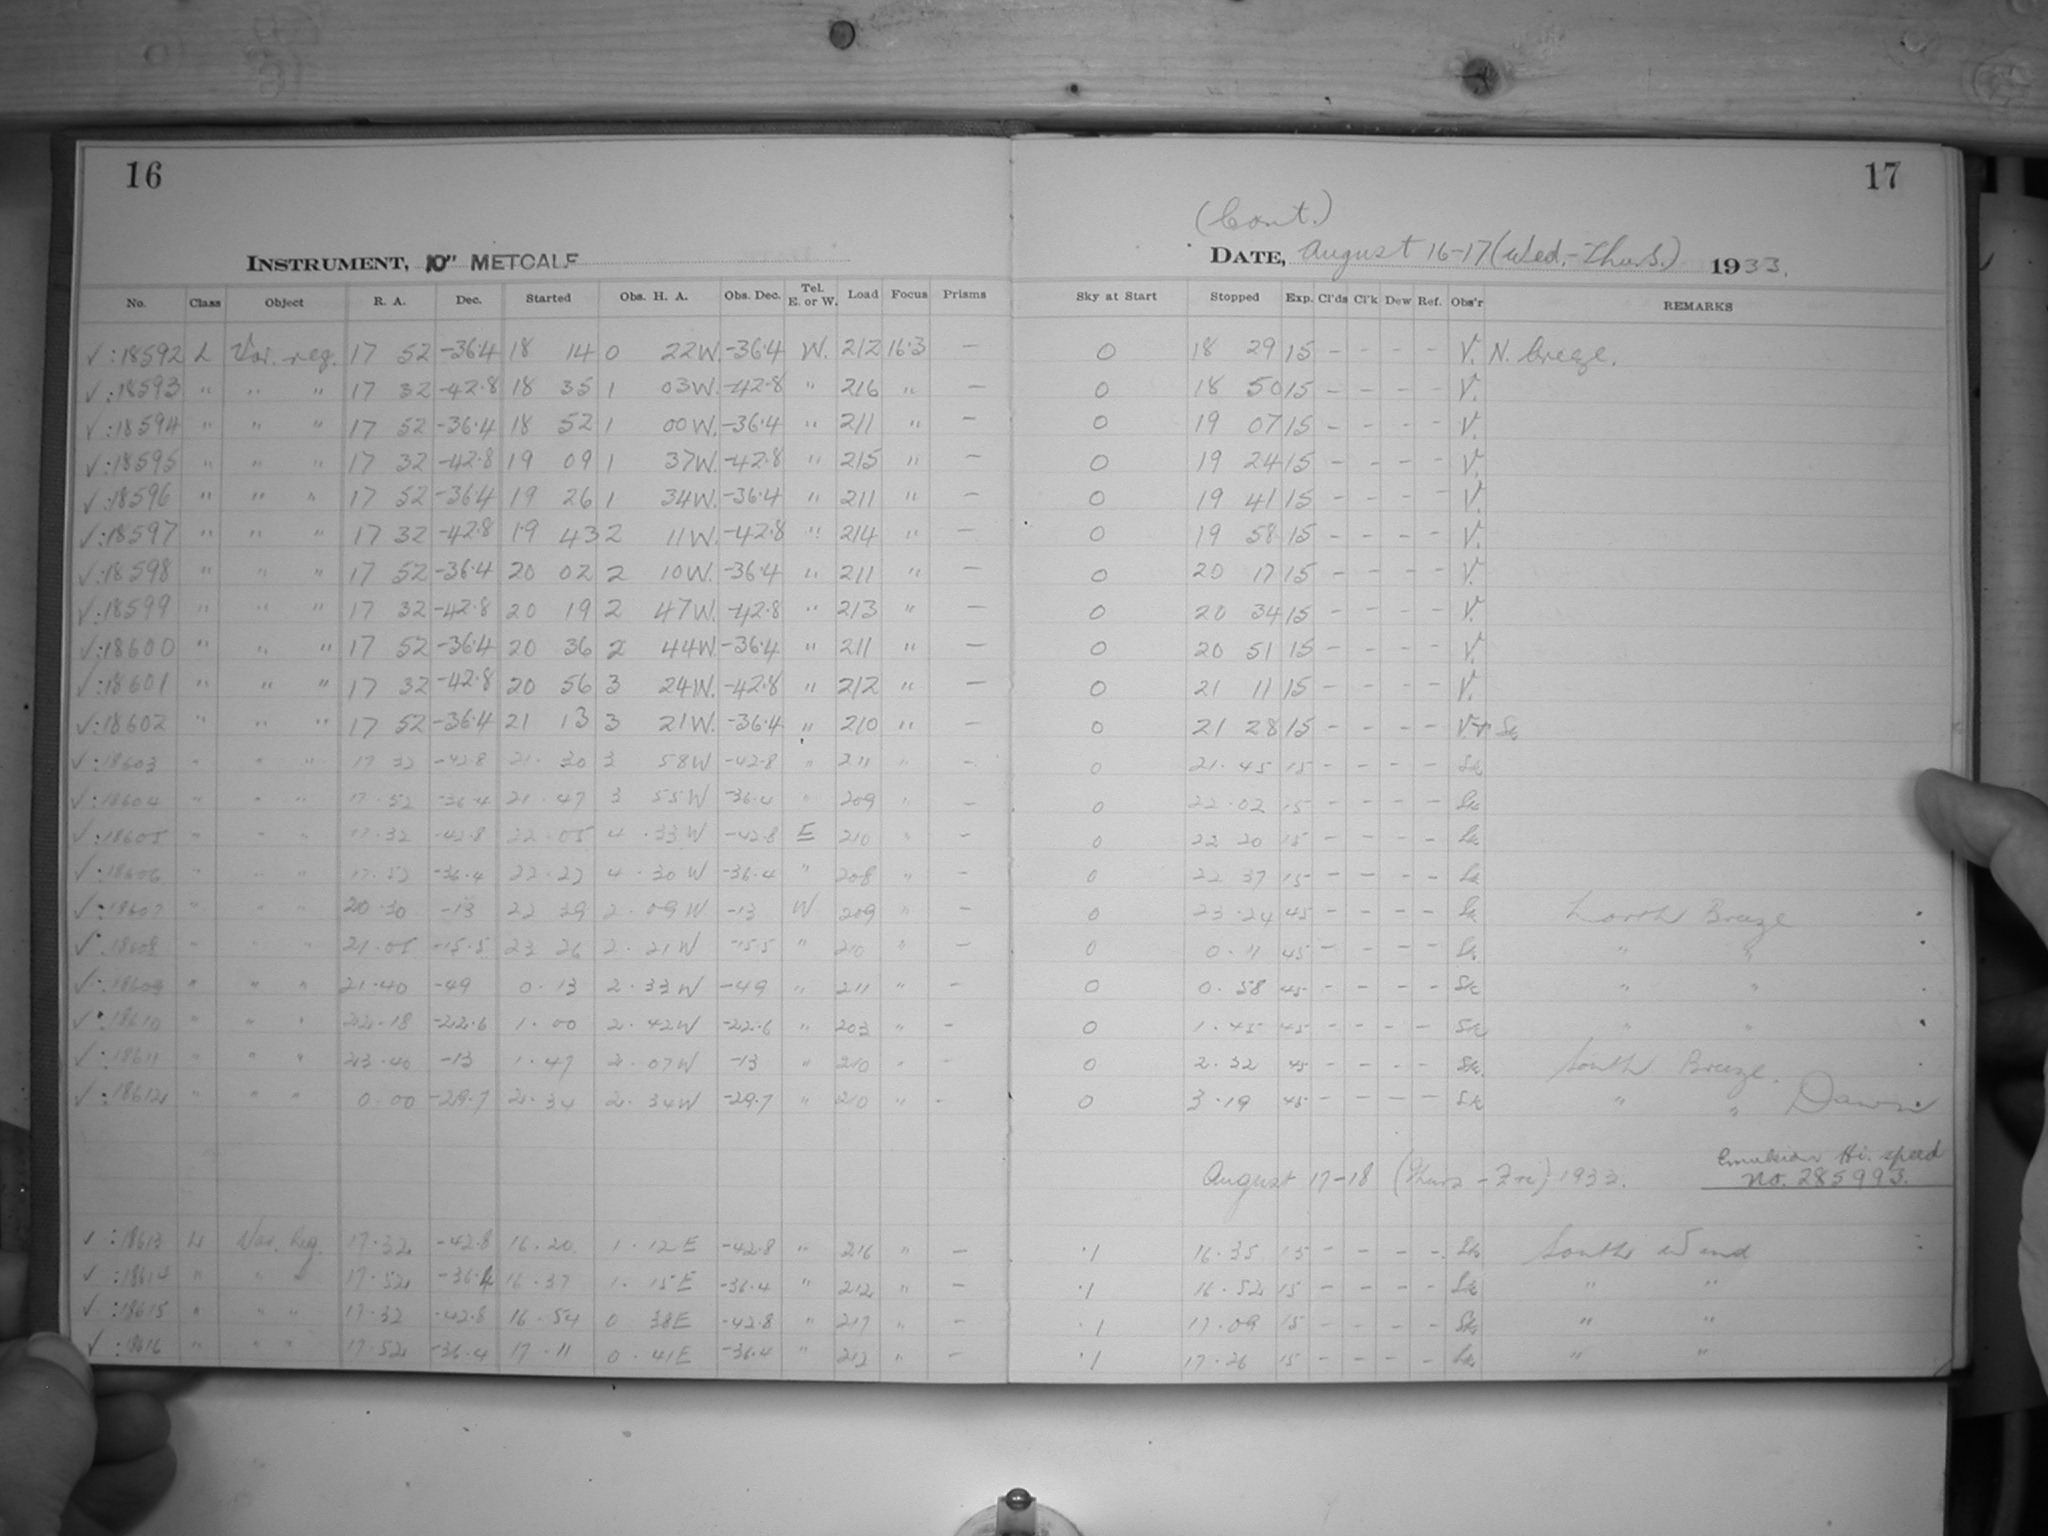 16
17
(Cont.)
INSTRUMENT, 10" METCALF
DATE, August 16-17 (Wed.-Thurs.) 1933.
No. Class Object R. A. Dec. Started Obs. H. A. Obs. Dec. Tel. E. or W. Load Focus Prisms Sky at Start Stopped Exp. Cl'ds Cl'k Dew Ref. Obs'r REMARKS
✓:18592 L Var. reg. 17 52 -36.4 18 14 0 22W. -36.4 W. 212 16.3 — 0 18 29 15 - - - - V. N. breeze.
✓:18593 " " " 17 32 -42.8 18 35 1 03W. -42.8 " 216 " — 0 18 50 15 - - - - V.
✓:18594 " " " 17 52 -36.4 18 52 1 00W. -36.4 " 211 " — 0 19 07 15 - - - - V.
✓:18595 " " " 17 32 -42.8 19 09 1 37W. -42.8 " 215 " — 0 19 24 15 - - - - V.
✓:18596 " " " 17 52 -36.4 19 26 1 34W. -36.4 " 211 " — 0 19 41 15 - - - - V.
✓:18597 " " " 17 32 -42.8 19 43 2 11W. -42.8 " 214 " — 0 19 58 15 - - - - V.
✓:18598 " " " 17 52 -36.4 20 02 2 10W. -36.4 " 211 " — 0 20 17 15 - - - - V.
✓:18599 " " " 17 32 -42.8 20 19 2 47W. -42.8 " 213 " — 0 20 34 15 - - - - V.
✓:18600 " " " 17 52 -36.4 20 36 2 44W. -36.4 " 211 " — 0 20 51 15 - - - - V.
✓:18601 " " " 17 32 -42.8 20 56 3 24W. -42.8 " 212 " — 0 21 11 15 - - - - V.
✓:18602 " " " 17 52 -36.4 21 13 3 21W. -36.4 " 210 " — 0 21 28 15 - - - - V+
✓:18603 " " " 17 32 -42.8 21.30 3 58W -42.8 " 211 " — 0 21.45 15 - - - -
✓:18604 " " " 17.52 -36.4 21.47 3 55W -36.4 " 209 " — 0 22.02 15 - - - -
✓:18605 " " " 17.32 -42.8 22.05 4.33W -42.8 E 210 " — 0 22 20 15 - - - -
✓:18606 " " " 17.52 -36.4 22.22 4.30W -36.4 " 208 " — 0 22 37 15 - - - -
✓:18607 " " " 20.30 -13 22 39 2.09W -13 W 209 " — 0 23.24 45 - - - - North Breeze
✓.18608 " " " 21.05 -15.5 23 26 2.21W -15.5 " 210 " — 0 0.11 45 - - - - " "
✓.18609 " " " 21.40 -49 0.13 2.33W -49 " 211 " — 0 0.58 45 - - - - " "
✓.18610 " " " 22.18 -22.6 1.00 2.42W -22.6 " 203 " — 0 1.45 45 - - - - " "
✓:18611 " " " 23.40 -13 1.47 2.07W -13 " 210 " — 0 2.32 45 - - - - South Breeze.
✓:18612 " " " 0.00 -29.7 2.34 2.34W -29.7 " 210 " - 0 3.19 45 - - - - " " Dawn
August 17-18 (Thurs - Fri) 1933.
Emulsion Hi. speed
No. 285993.
✓:18613 L Var. Reg. 17.32 -42.8 16.20 1.12E -42.8 " 216 " — .1 16.35 15 - - - - South Wind
✓:18614 " " " 17.52 -36.4 16.37 1.15E -36.4 " 212 " — .1 16.52 15 - - - - " "
✓:18615 " " " 17.32 -42.8 16.54 0 38E -42.8 " 217 " — .1 17.09 15 - - - - " "
✓:18616 " " " 17.52 -36.4 17.11 0.41E -36.4 " 212 " — .1 17.26 15 - - - - " "